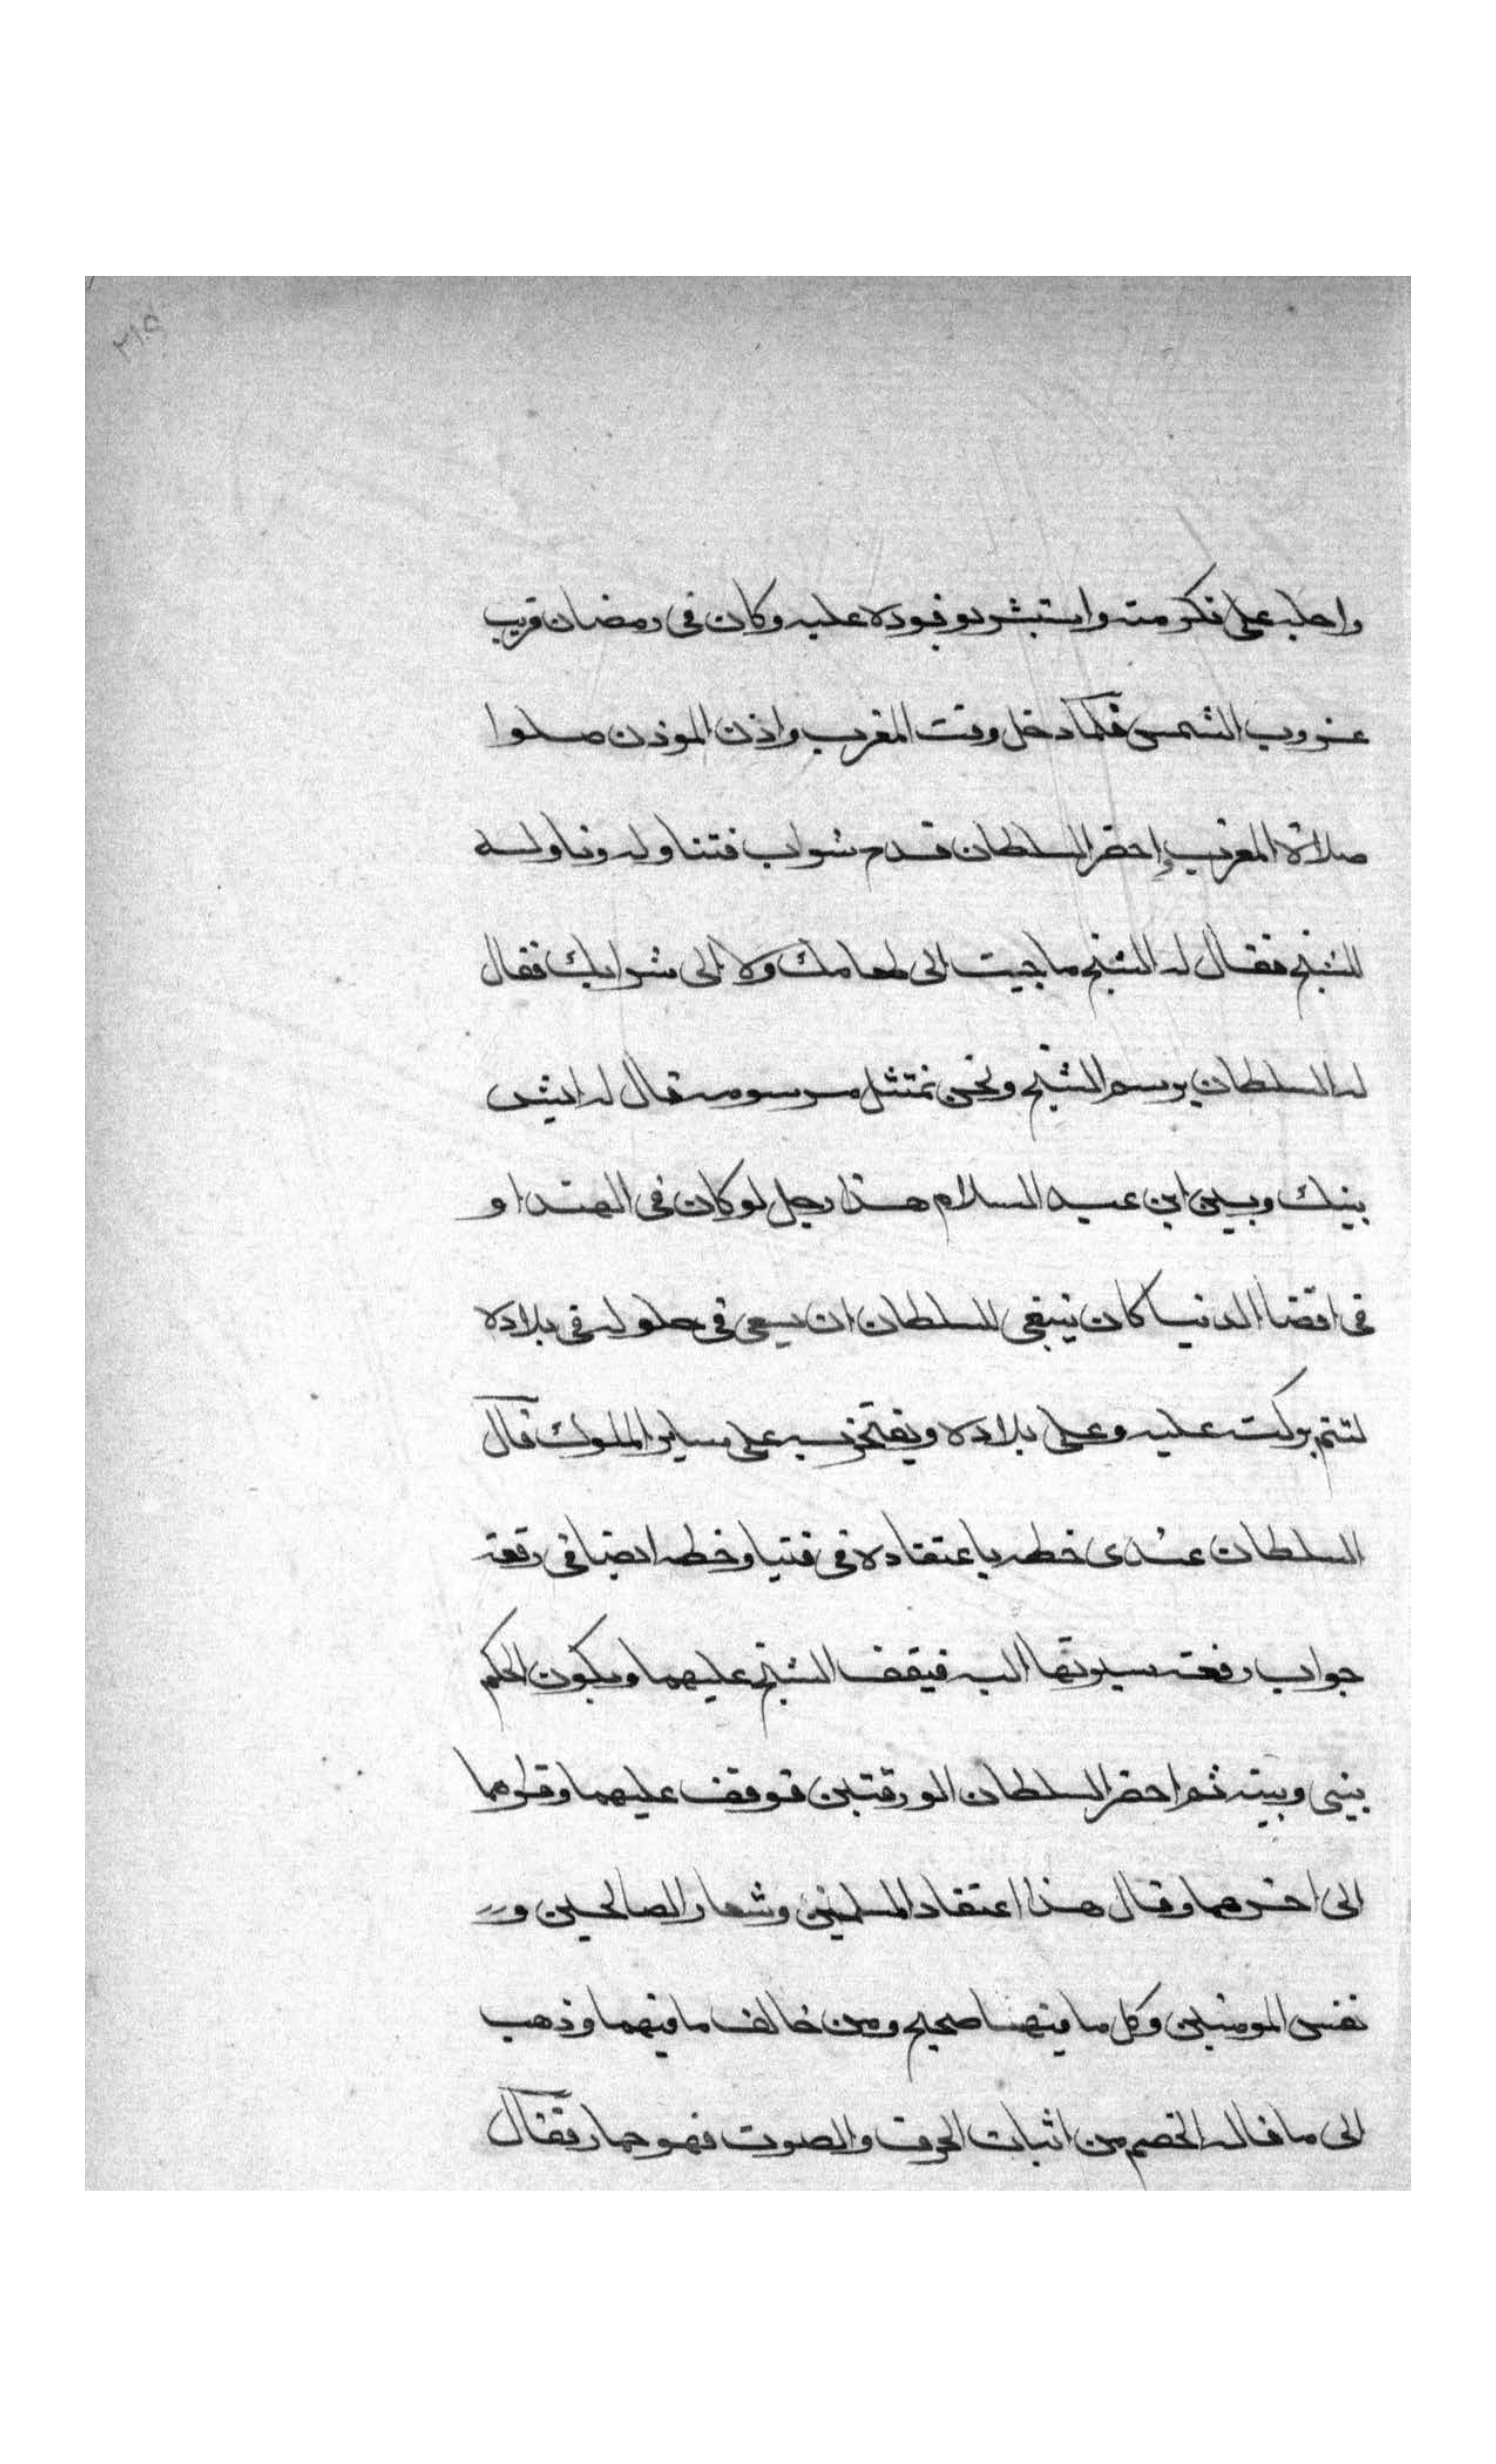 ٢١٩
واجلسه على تكرمته واستبشر بوفوده عليه وكان في رمضان قريب
غروب الشمس فلما دخل وقت المغرب واذن الموذن صلوا
صلاة المغرب واحضر السلطان قدح شراب فتناوله وناوله
للشيخ فقال له الشيخ ما جيت الى طعامك ولا الى شرابك فقال
له السلطان يرسم الشيخ ونحن نمتثل مرسومه قال له ايش
بينك وبين ابن عبد السلام هذا رجل لو كان في الهند او
في اقصا الدنيا كان ينبغي للسلطان ان يسعى في حلوله في بلاده
لتتم بركته عليه وعلى بلاده ويفتخر به على ساير الملوك قال
السلطان عندي خطه باعتقاده في فتيا وخطه ايضا في رقعة
جواب رقعة سيرتها اليه فيقف الشيخ عليهما ويكون الحكم
بيني وبينه ثم احضر السلطان الورقتين فوقف عليهما وقراهما
الى اخرهما وقال هذا اعتقاد المسلمين وشعار الصالحين و
نفس المومنين وكل ما فيهما صحيح ومن خالف ما فيهما وذهب
الى ما قاله الخصم من اثبات الحرف والصوت فهو حمار فقال